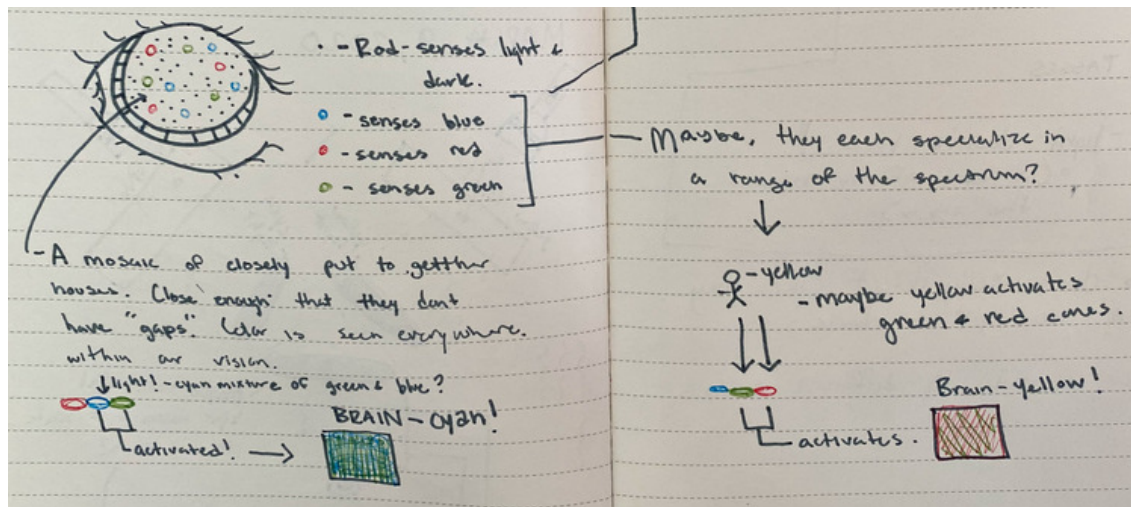 • - Rod - senses light &
dark.
o - senses blue
o - senses red
o - senses green
- A mosaic of closely put to getther
houses. Close enough that they dont
have "gaps". Color is seen everywhere.
within our vision.
↓light! - cyan mixture of green & blue?
activated! →
BRAIN - cyan!
Maybe, they each specialize in
a range of the spectrum?
- yellow
- maybe yellow activates
green & red cones.
activates.
Brain - yellow!